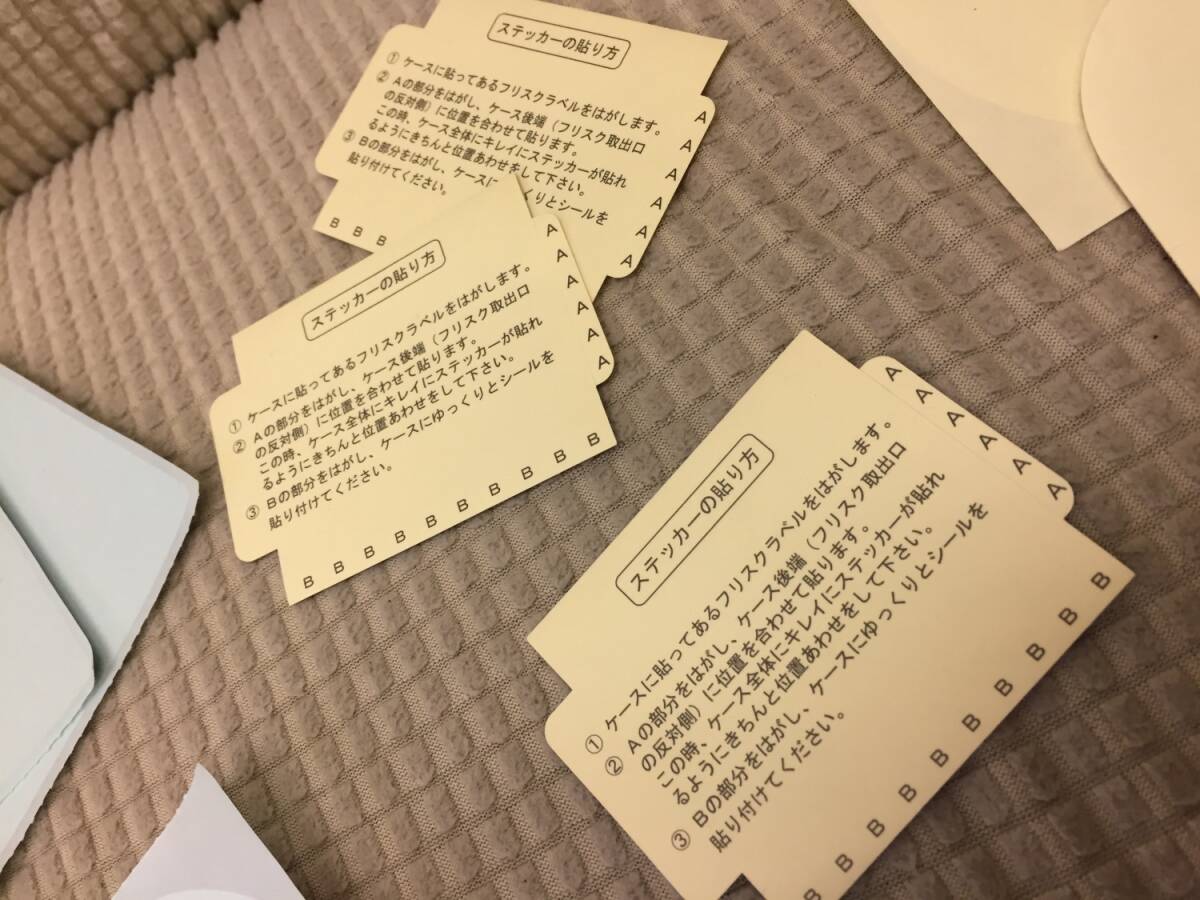 ステッカーの貼り方
① ケースに貼ってあるフリスクラベルをはがします。
② Aの部分をはがし、ケース後端（フリスク取出口
の反対側）に位置を合わせて貼ります。
この時、ケース全体にキレイにステッカーが貼れ
るようにきちんと位置あわせをして下さい。
③ Bの部分をはがし、ケースに くりとシールを
貼り付けてください。
A
A
A
A
A
A
B B B
ステッカーの貼り方
① ケースに貼ってあるフリスクラベルをはがします。
② Aの部分をはがし、ケース後端（フリスク取出口
の反対側）に位置を合わせて貼ります。
この時、ケース全体にキレイにステッカーが貼れ
るようにきちんと位置あわせをして下さい。
③ Bの部分をはがし、ケースにゆっくりとシールを
貼り付けてください。
A
A
A
A
A
A
B B B B B B B B B B
ステッカーの貼り方
① ケースに貼ってあるフリスクラベルをはがします。
② Aの部分をはがし、ケース後端（フリスク取出口
の反対側）に位置を合わせて貼ります。
この時、ケース全体にキレイにステッカーが貼れ
るようにきちんと位置あわせをして下さい。
③ Bの部分をはがし、ケースにゆっくりとシールを
貼り付けてください。
A
A
A
A
A
B B B B B B B B B B